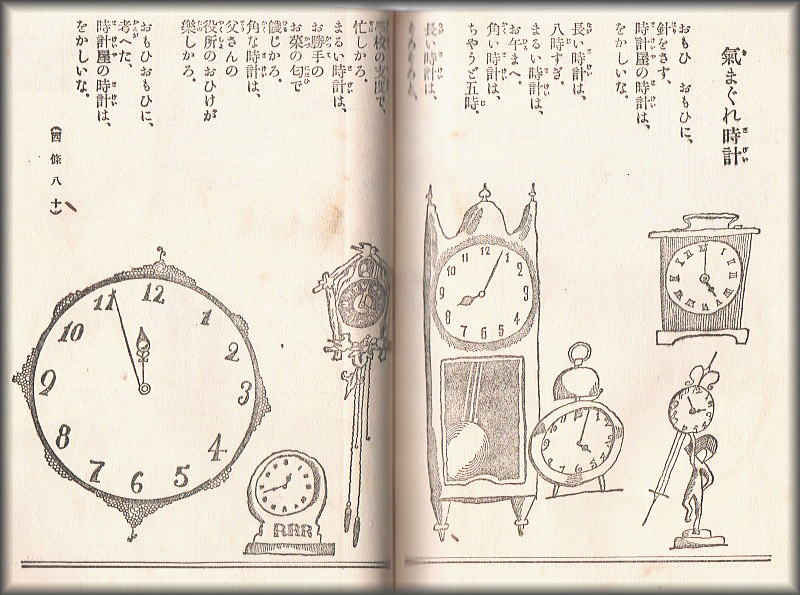 氣まぐれ時計
おもひ おもひに、
針をさす、
時計屋の時計は、
をかしいな。
長い時計は、
八時すぎ。
まるい時計は、
お午まへ。
角い時計は、
ちやうど五時。
長い時計は、
學校の支度で、
忙しかろ。
まるい時計は、
お勝手の
お菜の匂で
饑じかろ。
角な時計は、
父さんの
役所のおひけが
樂しかろ。
おもひおもひに、
考へた、
時計屋の時計は、
をかしいな。
(西條八十)
12 1 2 3 4 5 6 7 8 9 10 11
RRR